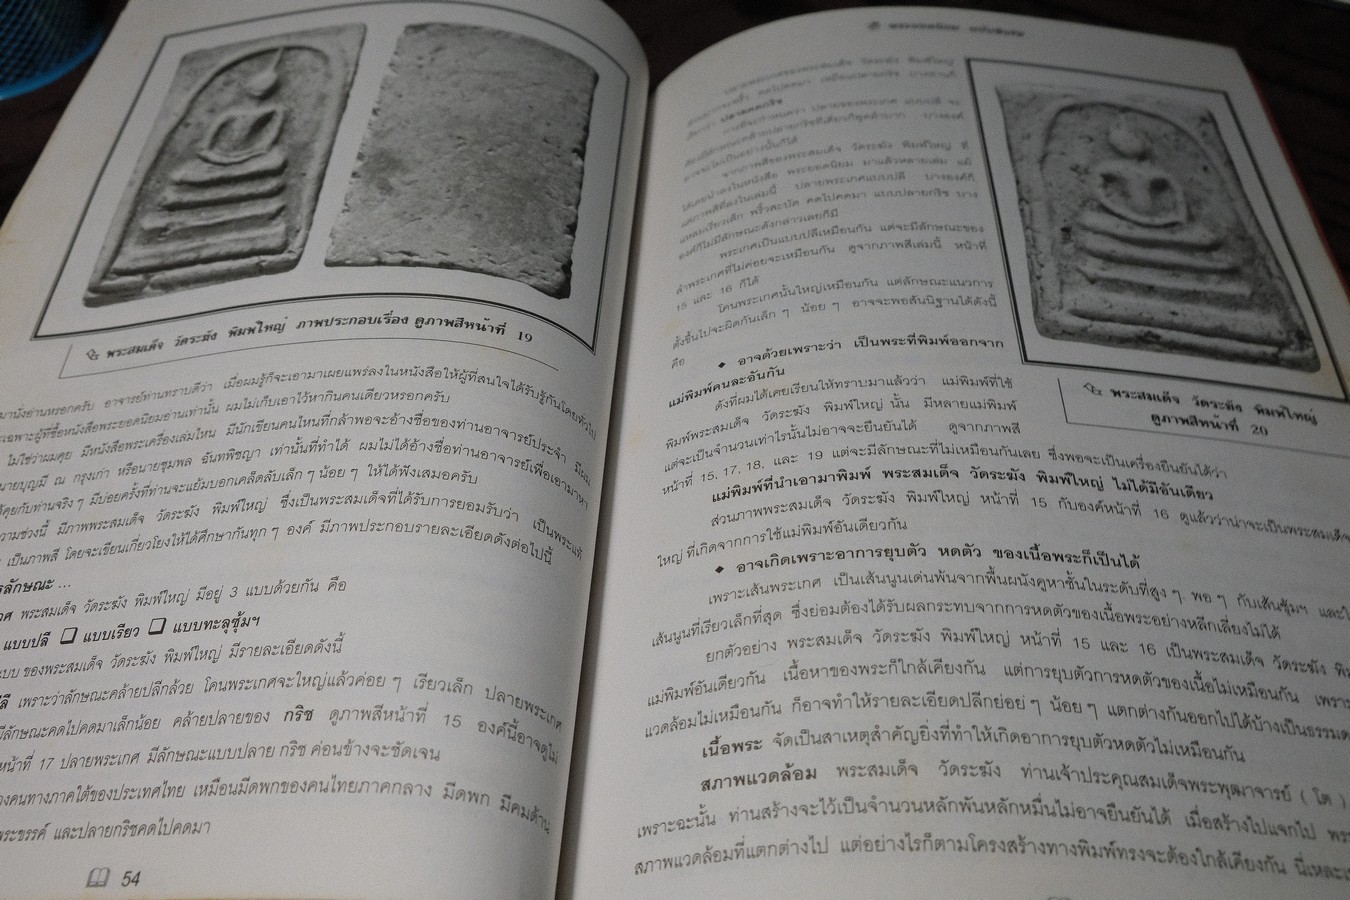 พระสมเด็จ วัดระฆัง พิมพ์ใหญ่ ภาพประกอบเรื่อง ดูภาพสีหน้าที่ 19
มานั่งอ่านหรอกครับ อาจารย์ท่านทราบดีว่า เมื่อผมรู้ก็จะเอามาเผยแพร่ลงในหนังสือให้ผู้ที่สนใจได้รับรู้กันโดยทั่วไป
เฉพาะผู้ที่ซื้อหนังสือพระยอดนิยมอ่านเท่านั้น ผมไม่เก็บเอาไว้หากินคนเดียวหรอกครับ
ไม่ใช่ว่าผมคุย มีหนังสือพระเครื่องเล่มไหน มีนักเขียนคนไหนที่กล้าพอจะอ้างชื่อของท่านอาจารย์ประจำ มีผม
นายบุญมี ณ กรุงเก่า หรือนายชุมพล ฉันทพิชญา เท่านั้นที่ทำได้ ผมไม่ได้อ้างชื่อท่านอาจารย์เพื่อเอามาหา
ได้คุยกับท่านจริง ๆ มีบ่อยครั้งที่ท่านจะแย้มบอกเคล็ดลับเล็ก ๆ น้อย ๆ ให้ได้ฟังเสมอครับ
ความช่วงนี้ มีภาพพระสมเด็จ วัดระฆัง พิมพ์ใหญ่ ซึ่งเป็นพระสมเด็จที่ได้รับการยอมรับว่า เป็นพระแท้
เป็นภาพสี โดยจะเขียนเกี่ยวโยงให้ได้ศึกษากันทุก ๆ องค์ มีภาพประกอบรายละเอียดดังต่อไปนี้
ลักษณะ ...
พระสมเด็จ วัดระฆัง พิมพ์ใหญ่ มีอยู่ 3 แบบด้วยกัน คือ
แบบปลี ❑ แบบเรียว ❑ แบบทะลุซุ้มฯ
แบบ ของพระสมเด็จ วัดระฆัง พิมพ์ใหญ่ มีรายละเอียดดังนี้
เพราะว่าลักษณะคล้ายปลีกล้วย โคนพระเกศจะใหญ่แล้วค่อย ๆ เรียวเล็ก ปลายพระเกศ
มีลักษณะคดไปคดมาเล็กน้อย คล้ายปลายของ กริช ดูภาพสีหน้าที่ 15 องค์นี้อาจดูไม่
หน้าที่ 17 ปลายพระเกศ มีลักษณะแบบปลาย กริช ค่อนข้างจะชัดเจน
ของคนทางภาคใต้ของประเทศไทย เหมือนมีดพกของคนไทยภาคกลาง มีดพก มีคมด้าน
พระขรรค์ และปลายกริชคดไปคดมา
54
ปลายคดกริช
อาจจะไม่เป็นอย่างนั้นก็ได้
จากภาพสีของพระสมเด็จ วัดระฆัง พิมพ์ใหญ่ ที่
ได้เคยนำลงในหนังสือ พระยอดนิยม มาแล้วหลายเล่ม แม้
แต่ภาพสีที่ลงในเล่มนี้ ปลายพระเกศแบบปลี บางองค์ก็
แหลมเรียวเล็ก พริ้วสะบัด คดไปคดมา แบบปลายกริช บาง
องค์ก็ไม่มีลักษณะดังกล่าวเลยก็มี
พระเกศเป็นแบบปลีเหมือนกัน แต่จะมีลักษณะของ
ลำพระเกศที่ไม่ค่อยจะเหมือนกัน ดูจากภาพสีเล่มนี้ หน้าที่
15 และ 16 ก็ได้
โคนพระเกศนั้นใหญ่เหมือนกัน แต่ลักษณะแนวการ
ตั้งขึ้นไปจะผิดกันเล็ก ๆ น้อย ๆ อาจจะพอสันนิฐานได้ดังนี้
คือ
◆ อาจด้วยเพราะว่า เป็นพระที่พิมพ์ออกจาก
แม่พิมพ์คนละอันกัน
ดังที่ผมได้เคยเรียนให้ทราบมาแล้วว่า แม่พิมพ์ที่ใช้
พิมพ์พระสมเด็จ วัดระฆัง พิมพ์ใหญ่ นั้น มีหลายแม่พิมพ์
แต่จะเป็นจำนวนเท่าไรนั้นไม่อาจจะยืนยันได้ ดูจากภาพสี
หน้าที่ 15, 17, 18, และ 19 แต่จะมีลักษณะที่ไม่เหมือนกันเลย ซึ่งพอจะเป็นเครื่องยืนยันได้ว่า
แม่พิมพ์ที่นำเอามาพิมพ์ พระสมเด็จ วัดระฆัง พิมพ์ใหญ่ ไม่ได้มีอันเดียว
ส่วนภาพพระสมเด็จ วัดระฆัง พิมพ์ใหญ่ หน้าที่ 15 กับองค์หน้าที่ 16 ดูแล้วว่าน่าจะเป็นพระสมเด็จ
ใหญ่ ที่เกิดจากการใช้แม่พิมพ์อันเดียวกัน
◆ อาจเกิดเพราะอาการยุบตัว หดตัว ของเนื้อพระก็เป็นได้
เพราะเส้นพระเกศ เป็นเส้นนูนเด่นพ้นจากพื้นผนังคูหาชั้นในระดับที่สูง ๆ พอ ๆ กับเส้นซุ้มฯ และ
เส้นนูนที่เรียวเล็กที่สุด ซึ่งย่อมต้องได้รับผลกระทบจากการหดตัวของเนื้อพระอย่างหลีกเลี่ยงไม่ได้
ยกตัวอย่าง พระสมเด็จ วัดระฆัง พิมพ์ใหญ่ หน้าที่ 15 และ 16 เป็นพระสมเด็จ วัดระฆัง
แม่พิมพ์อันเดียวกัน เนื้อหาของพระก็ใกล้เคียงกัน แต่การยุบตัวการหดตัวของเนื้อไม่เหมือนกัน
แวดล้อมไม่เหมือนกัน ก็อาจทำให้รายละเอียดปลีกย่อย ๆ น้อย ๆ แตกต่างกันออกไปได้บ้างเป็นธรรมดา
เนื้อพระ จัดเป็นสาเหตุสำคัญยิ่งที่ทำให้เกิดอาการยุบตัวหดตัวไม่เหมือนกัน
สภาพแวดล้อม พระสมเด็จ วัดระฆัง ท่านเจ้าประคุณสมเด็จพระพุฒาจารย์ ( โต )
เพราะฉะนั้น ท่านสร้างจะไว้เป็นจำนวนหลักพันหลักหมื่นไม่อาจยืนยันได้ เมื่อสร้างไปแจกไป
สภาพแวดล้อมที่แตกต่างไป แต่อย่างไรก็ตามโครงสร้างทางพิมพ์ทรงจะต้องใกล้เคียงกัน
พระสมเด็จ วัดระฆัง พิมพ์ใหญ่
ดูภาพสีหน้าที่ 20